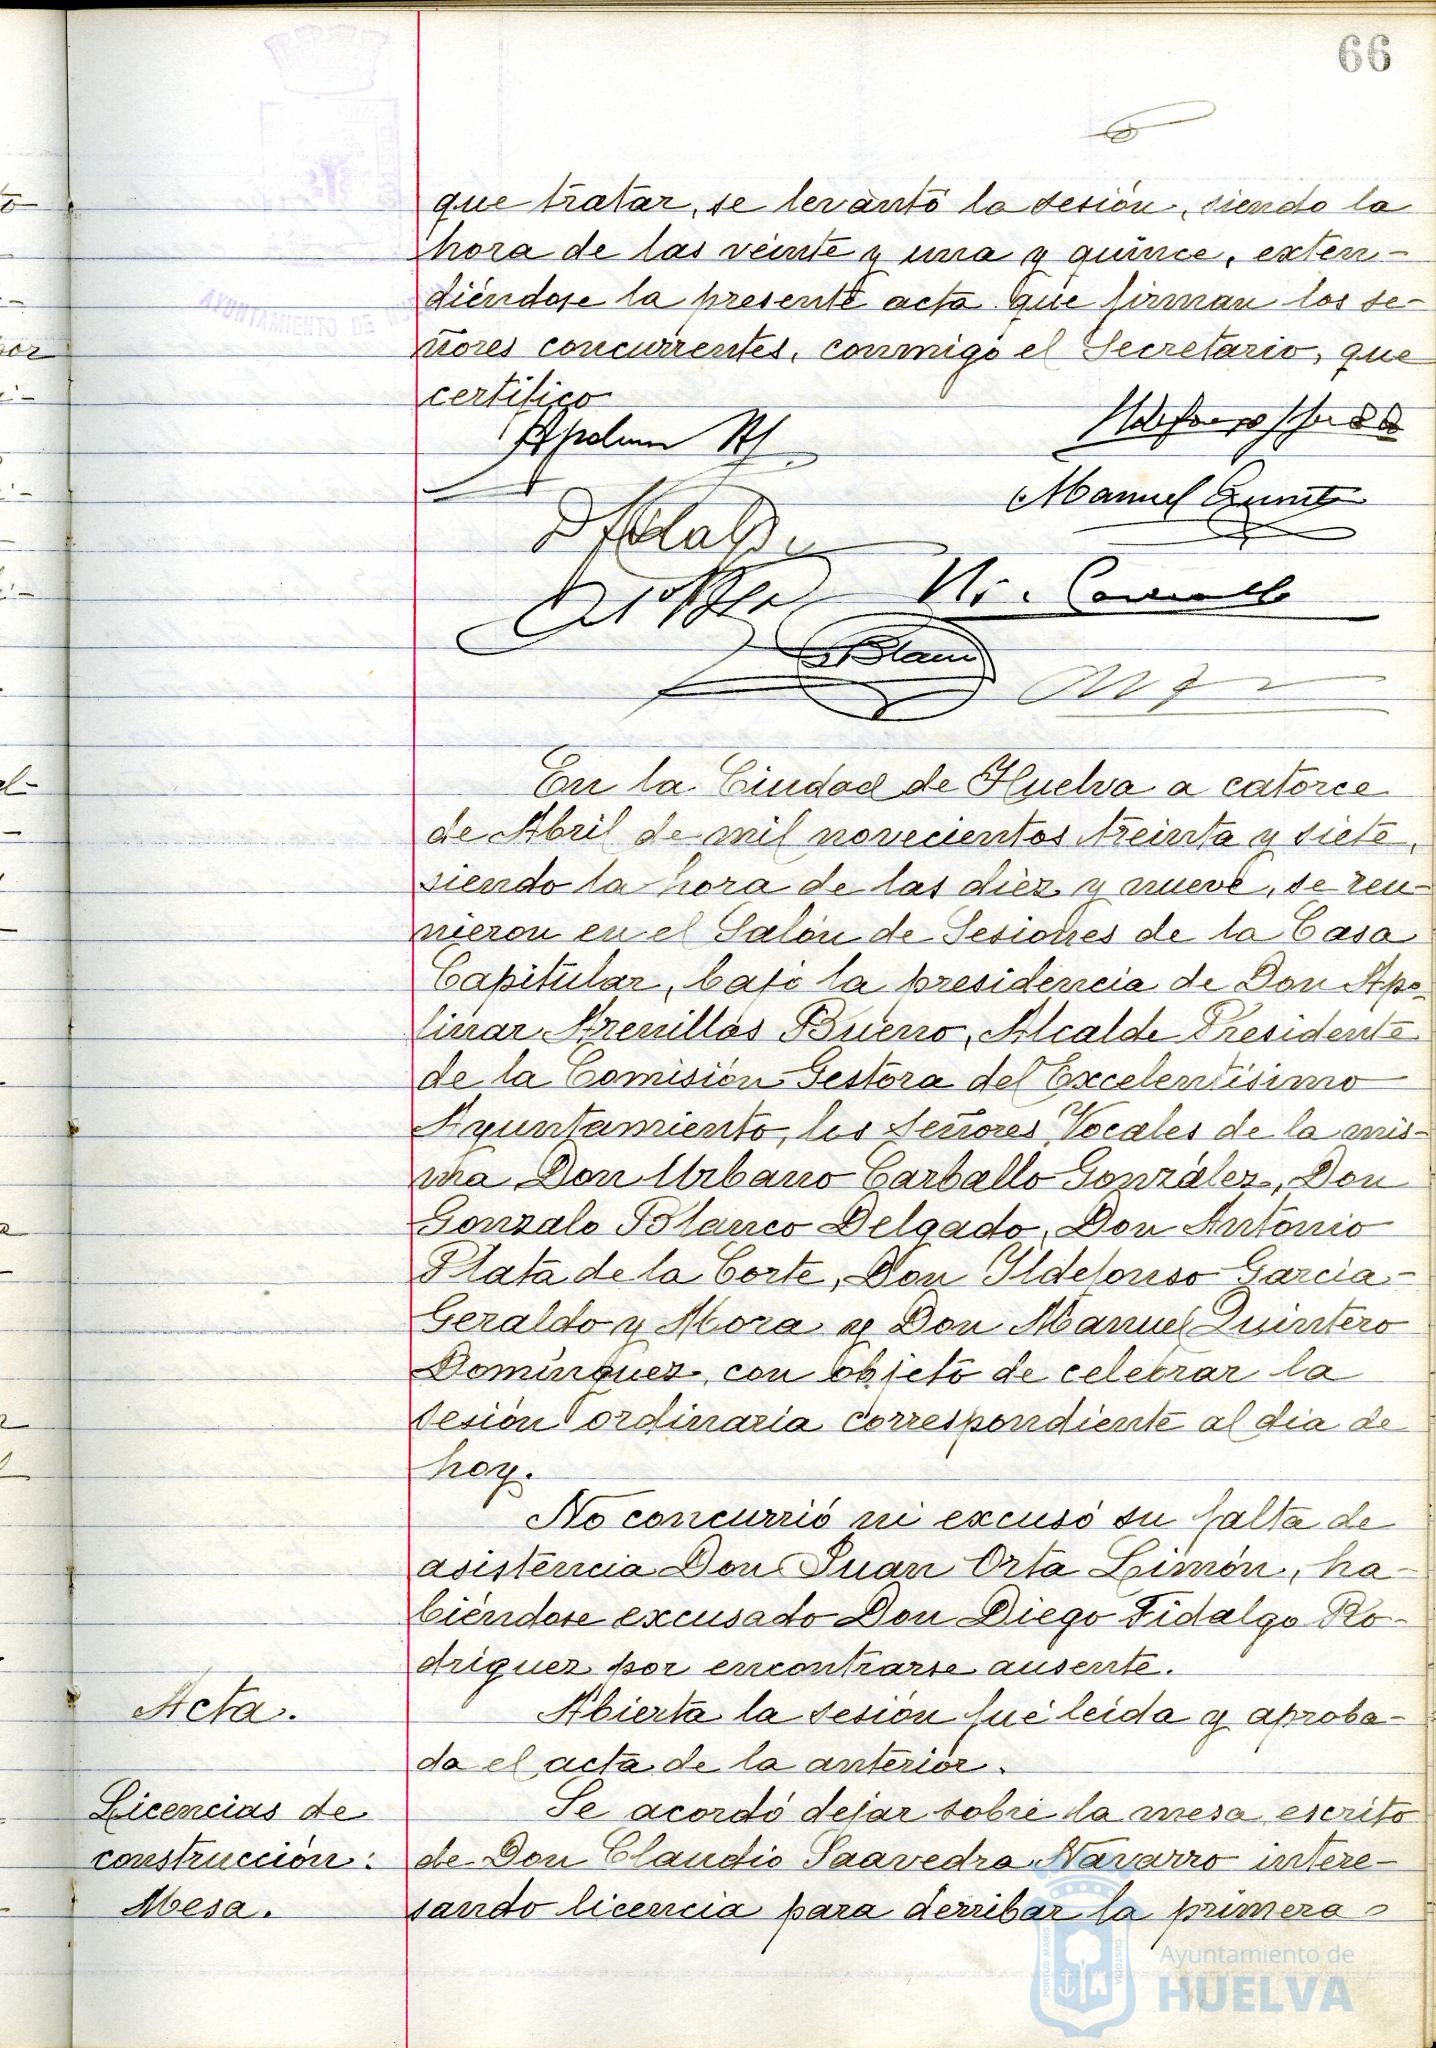 66
que tratar, se levantó la sesión, siendo la
hora de las veinte y una y quince, exten-
diéndose la presente acta que firman los se-
ñores concurrentes, conmigo el Secretario, que
certifico
Manuel Quinte
Blanco
En la Ciudad de Huelva a catorce
de Abril de mil novecientos treinta y siete,
siendo la hora de las diez y nueve, se reu-
nieron en el Salón de Sesiones de la Casa
Capitular, bajo la presidencia de Don Apo-
linar Arenillas Bueno, Alcalde Presidente
de la Comisión Gestora del Excelentísimo
Ayuntamiento, los Señores Vocales de la mis-
ma Don Urbano Carballo González, Don
Gonzalo Blanco Delgado, Don Antonio
Plata de la Corte, Don Ildefonso Garcia-
Geraldo y Mora y Don Manuel Quintero
Domínguez, con objeto de celebrar la
sesión ordinaria correspondiente al dia de
hoy.
No concurrió ni excusó su falta de
asistencia Don Juan Orta Limón, ha-
biéndose excusado Don Diego Fidalgo Ro-
dríguez por encontrarse ausente.
Acta.
Abierta la sesión fué leída y aproba-
da el acta de la anterior.
Licencias de
construcción:
Mesa.
Se acordó dejar sobre la mesa escrito
de Don Claudio Saavedra Navarro intere-
sando licencia para derribar la primera
AYUNTAMIENTO DE
PORTUS MARIS
CUSTODIA
Ayuntamiento de
HUELVA